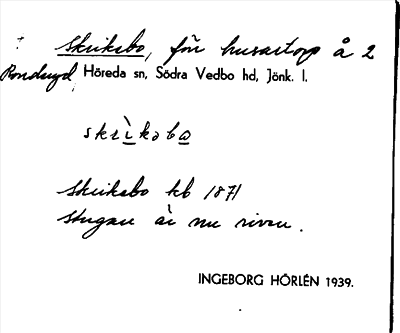 Skriksbo, för husartorp å 2
Rondryd, Höreda sn, Södra Vedbo hd, Jönk. l.
skrìkəbo
Skriksbo kb 1871
stugan är nu riven.
INGEBORG HÖRLÉN 1939.